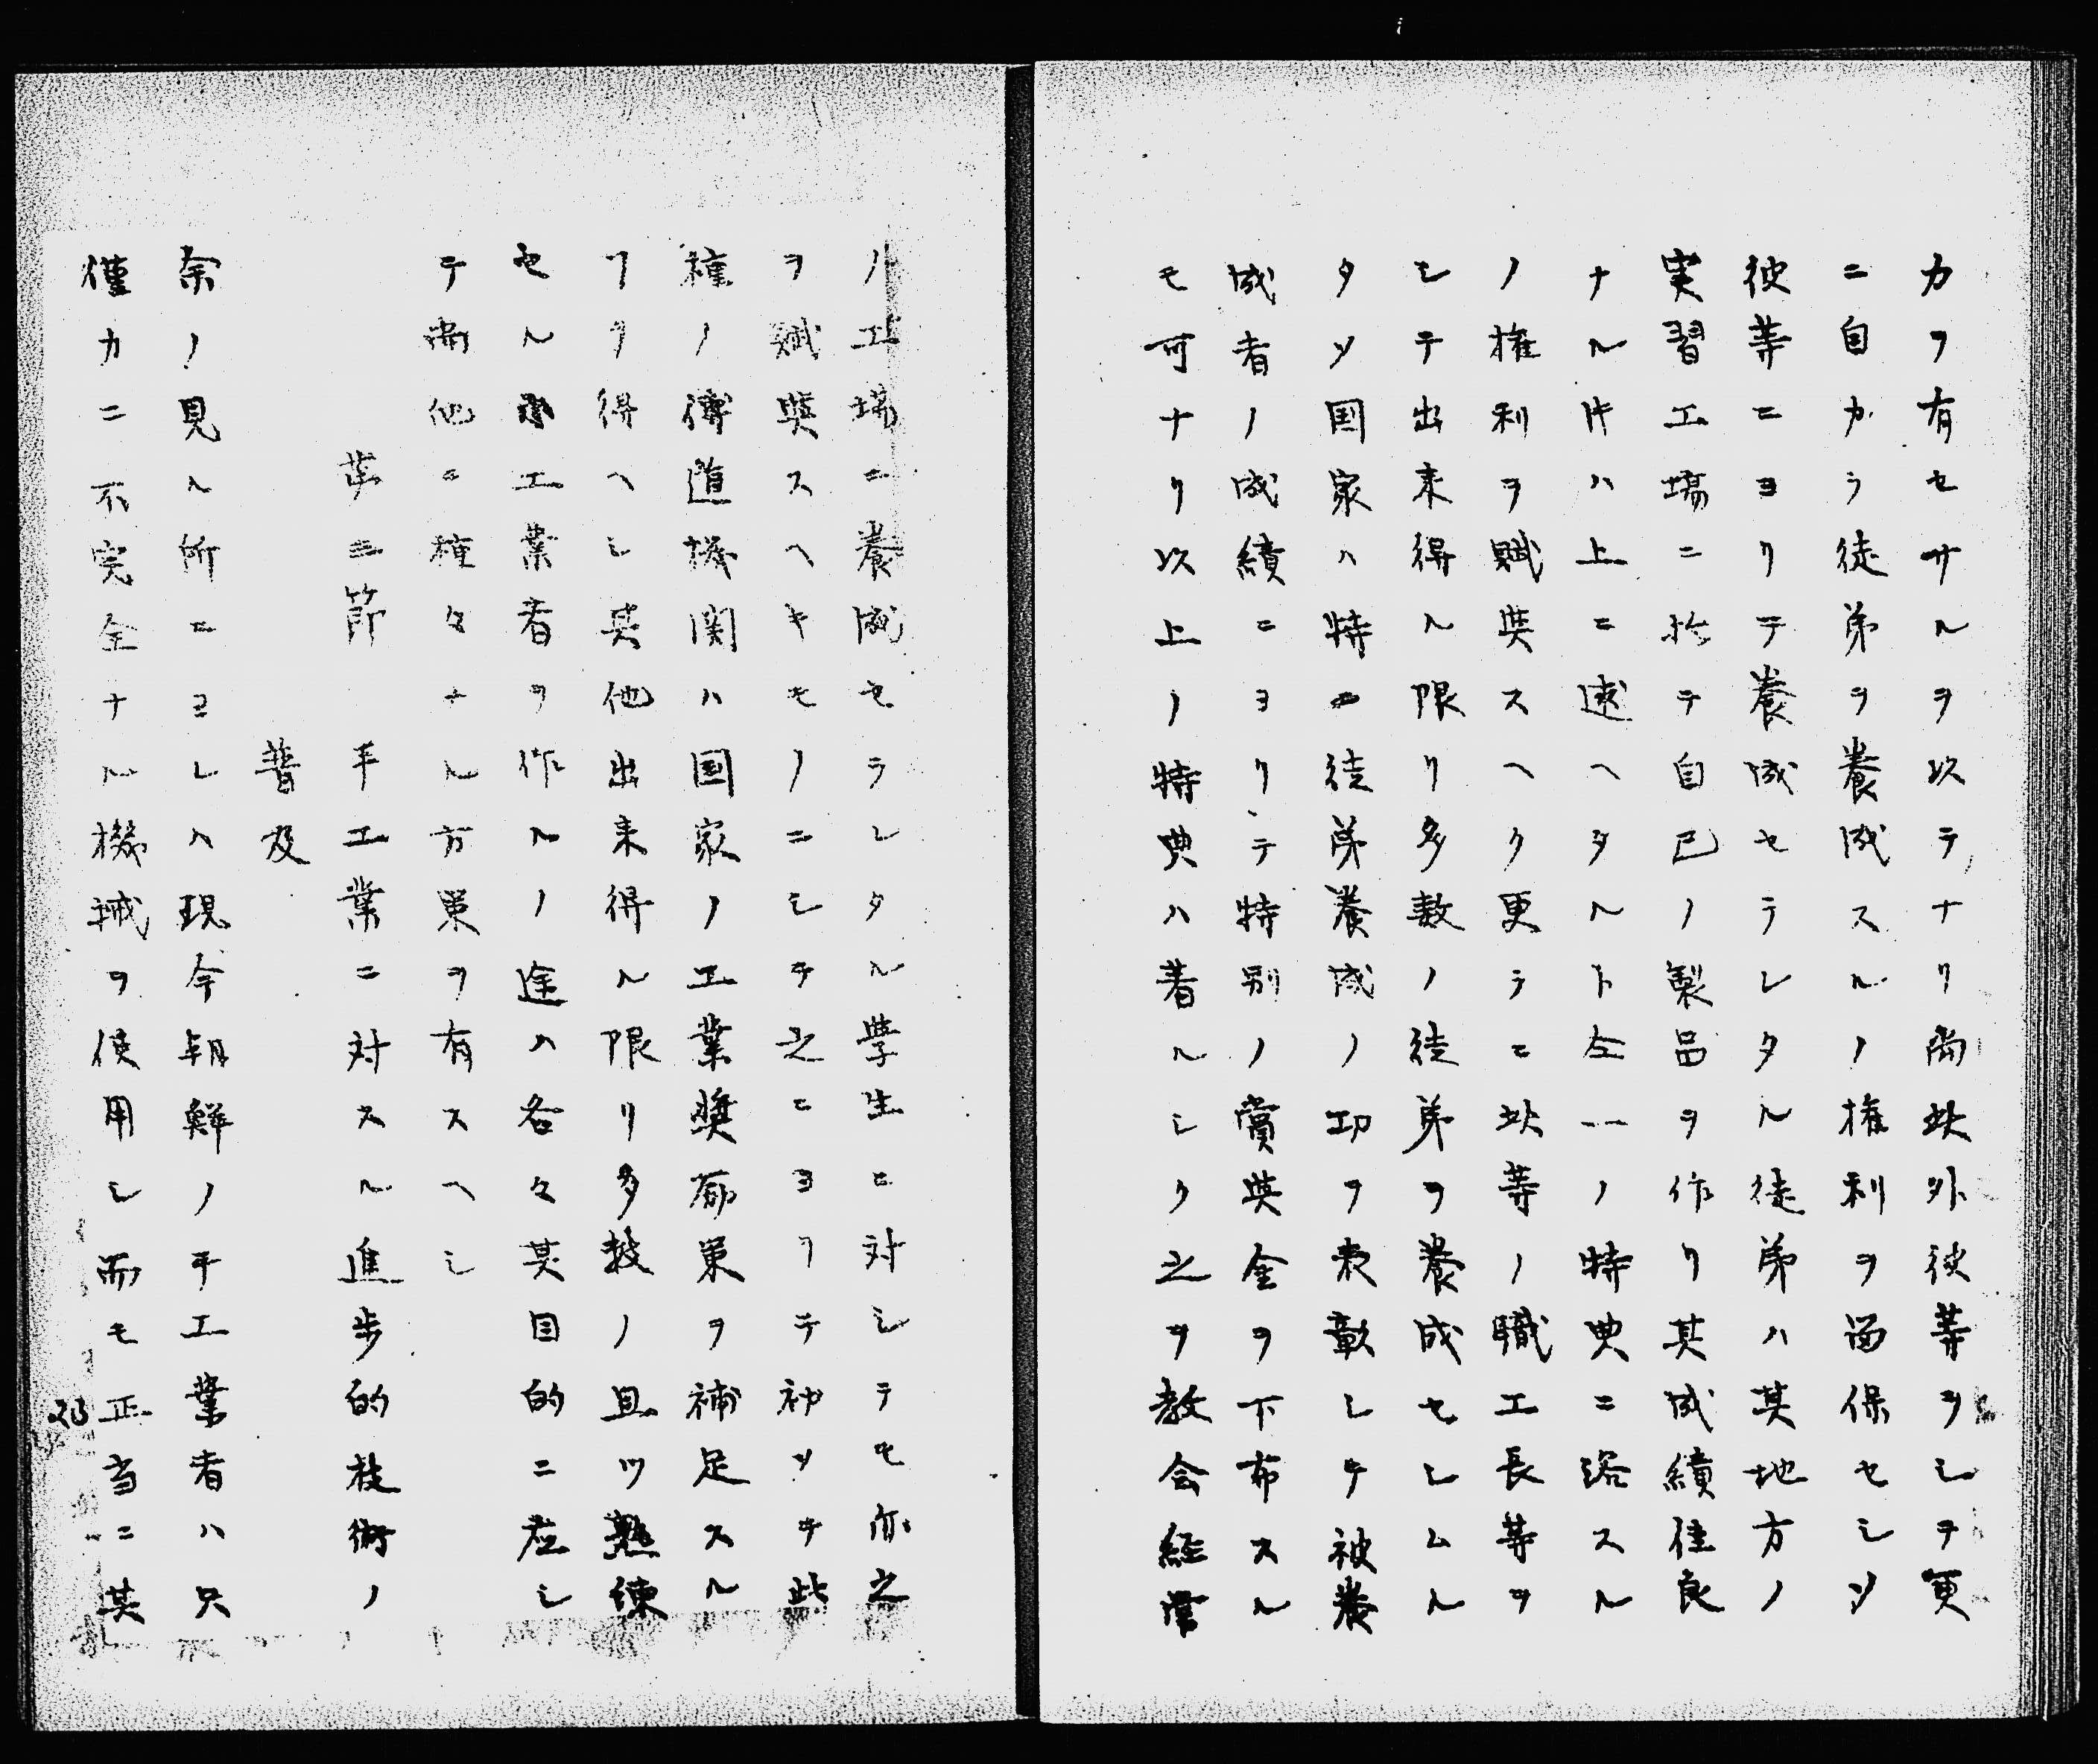 カヲ有セサルヲ以テナリ尚此外彼等ヲシテ更
ニ自カラ徒弟ヲ養成スルノ権利ヲ留保セシメ
彼等ニヨリテ養成セラレタル徒弟ハ其地方ノ
実習工場ニ於テ自己ノ製品ヲ作リ其成績佳良
ナル片ハ上ニ述ヘタルト仝一ノ特典ニ浴スル
ノ権利ヲ賦与スヘク更ラニ此等ノ職工長等ヲ
シテ出来得ル限リ多数ノ徒弟ヲ養成セシムル
タメ国家ハ特ニ徒弟養成ノ功ヲ表彰シテ被養
成者ノ成績ニヨリテ特別ノ賞与金ヲ下布スル
モ可ナリ以上ノ特典ハ着ルシク之ヲ教会経営
ノ工場ニ養成セラレタル学生ニ対シテモ亦之
ヲ賦与スヘキモノニシテ之ニヨリテ初メテ此
種ノ傳道機関ハ国家ノ工業奨励策ヲ補足スル
フヲ得ヘシ其他出来得ル限リ多数ノ且ツ熟練
セル小工業者ヲ作ルノ途ハ各々其目的ニ応シ
テ尚他ニ種々ナル方策ヲ有スヘシ
第三節　手工業ニ対スル進歩的技術ノ
普及
余ノ見ル所ニヨレハ現今朝鮮ノ手工業者ハ只
僅カニ不完全ナル機械ヲ使用シ而モ正当ニ其